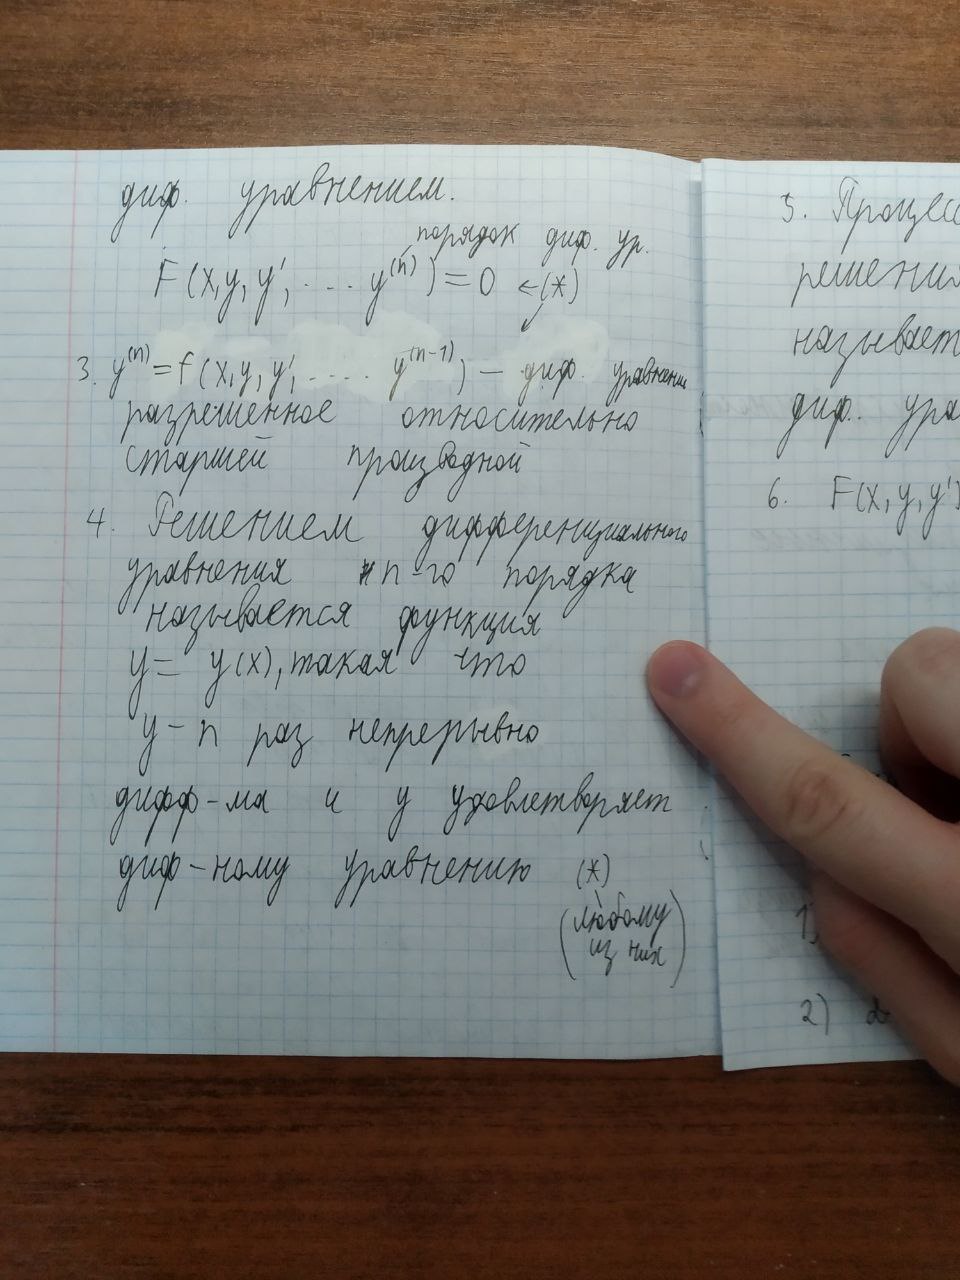 диф. уравнением.
порядок диф. ур.
F(x,y,y', .... y⁽ⁿ⁾)=0 ←(*)
3. y⁽ⁿ⁾=f(x,y,y', ..... y⁽ⁿ⁻¹⁾) — диф. уравнение
разрешенное относительно
старшей производной
4. Решением дифференциального
уравнения n-го порядка
называется функция
y= y(x), такая что
y - n раз непрерывно
дифф-ма и y удовлетворяет
диф-ному уравнению (*)
(любому
из них)
5. Процесс
решения
называет
диф. ура
6. F(x,y,y')
1)
2)